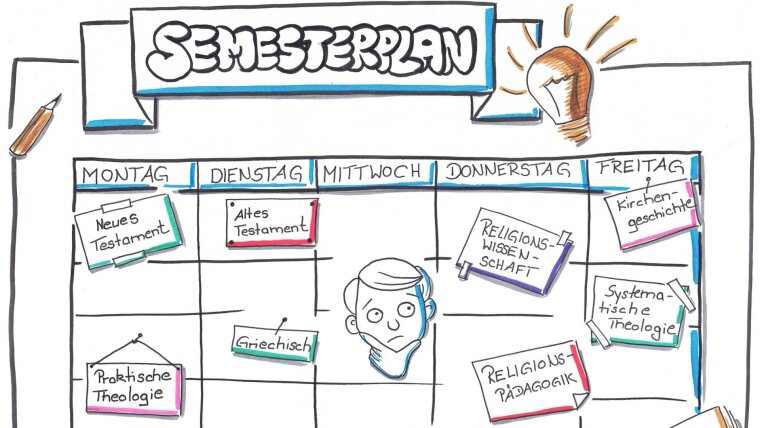 SEMESTERPLAN
MONTAG
DIENSTAG
MITTWOCH
DONNERSTAG
FREITAG
Neues
Testament
Altes
Testament
RELIGIONS-
WISSEN-
SCHAFT
Kirchen-
geschichte
Griechisch
Systema-
tische
Theologie
Praktische
Theologie
RELIGIONS-
PÄDAGOGIK